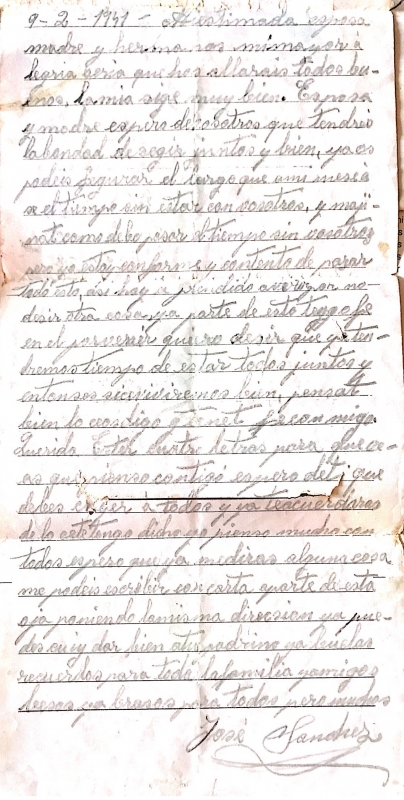 9-2-1941- Mi estimada esposa
madre y hermanos mi mayor a
legria seria que hos allarais todos bu-
enos, la mia sige muy bien. Esposa
y madre espero de vosotros que tendreis
la bondad de seger juntos y bien, ya os
podeis fegurar el largo que ami meseia
se el tiempo sin estar con vosotros, y maji-
nate como debo pasar el tiempo sin vosotros
pero yo estoy conforme y contento de pasar
todo esto, asi hay a prendido a vevir por no
desir otra cosa ya parte de esto tengo fe
en el porvenir quiero desir que ya ten-
dremos tiempo de estar todos juntos y
entonses si viviremos bien, pensat
bien lo
Querida Ester cuatro letras para que ve-
as que pienso contigo espero de ti que
debes creger a todos y ya te acuerdaras
de lo que te tengo dicho yo pienso mucho con
todos espero que ya me diras alguna cosa
me podeis escribir con carta aparte de esta
oja poniendo la misma direcsion ya pue-
des cuiydar bien atus padrino ya buelos
recuerdos para toda la familia y amigos
besos ya brasos para todos pero muchos
José Sanchez